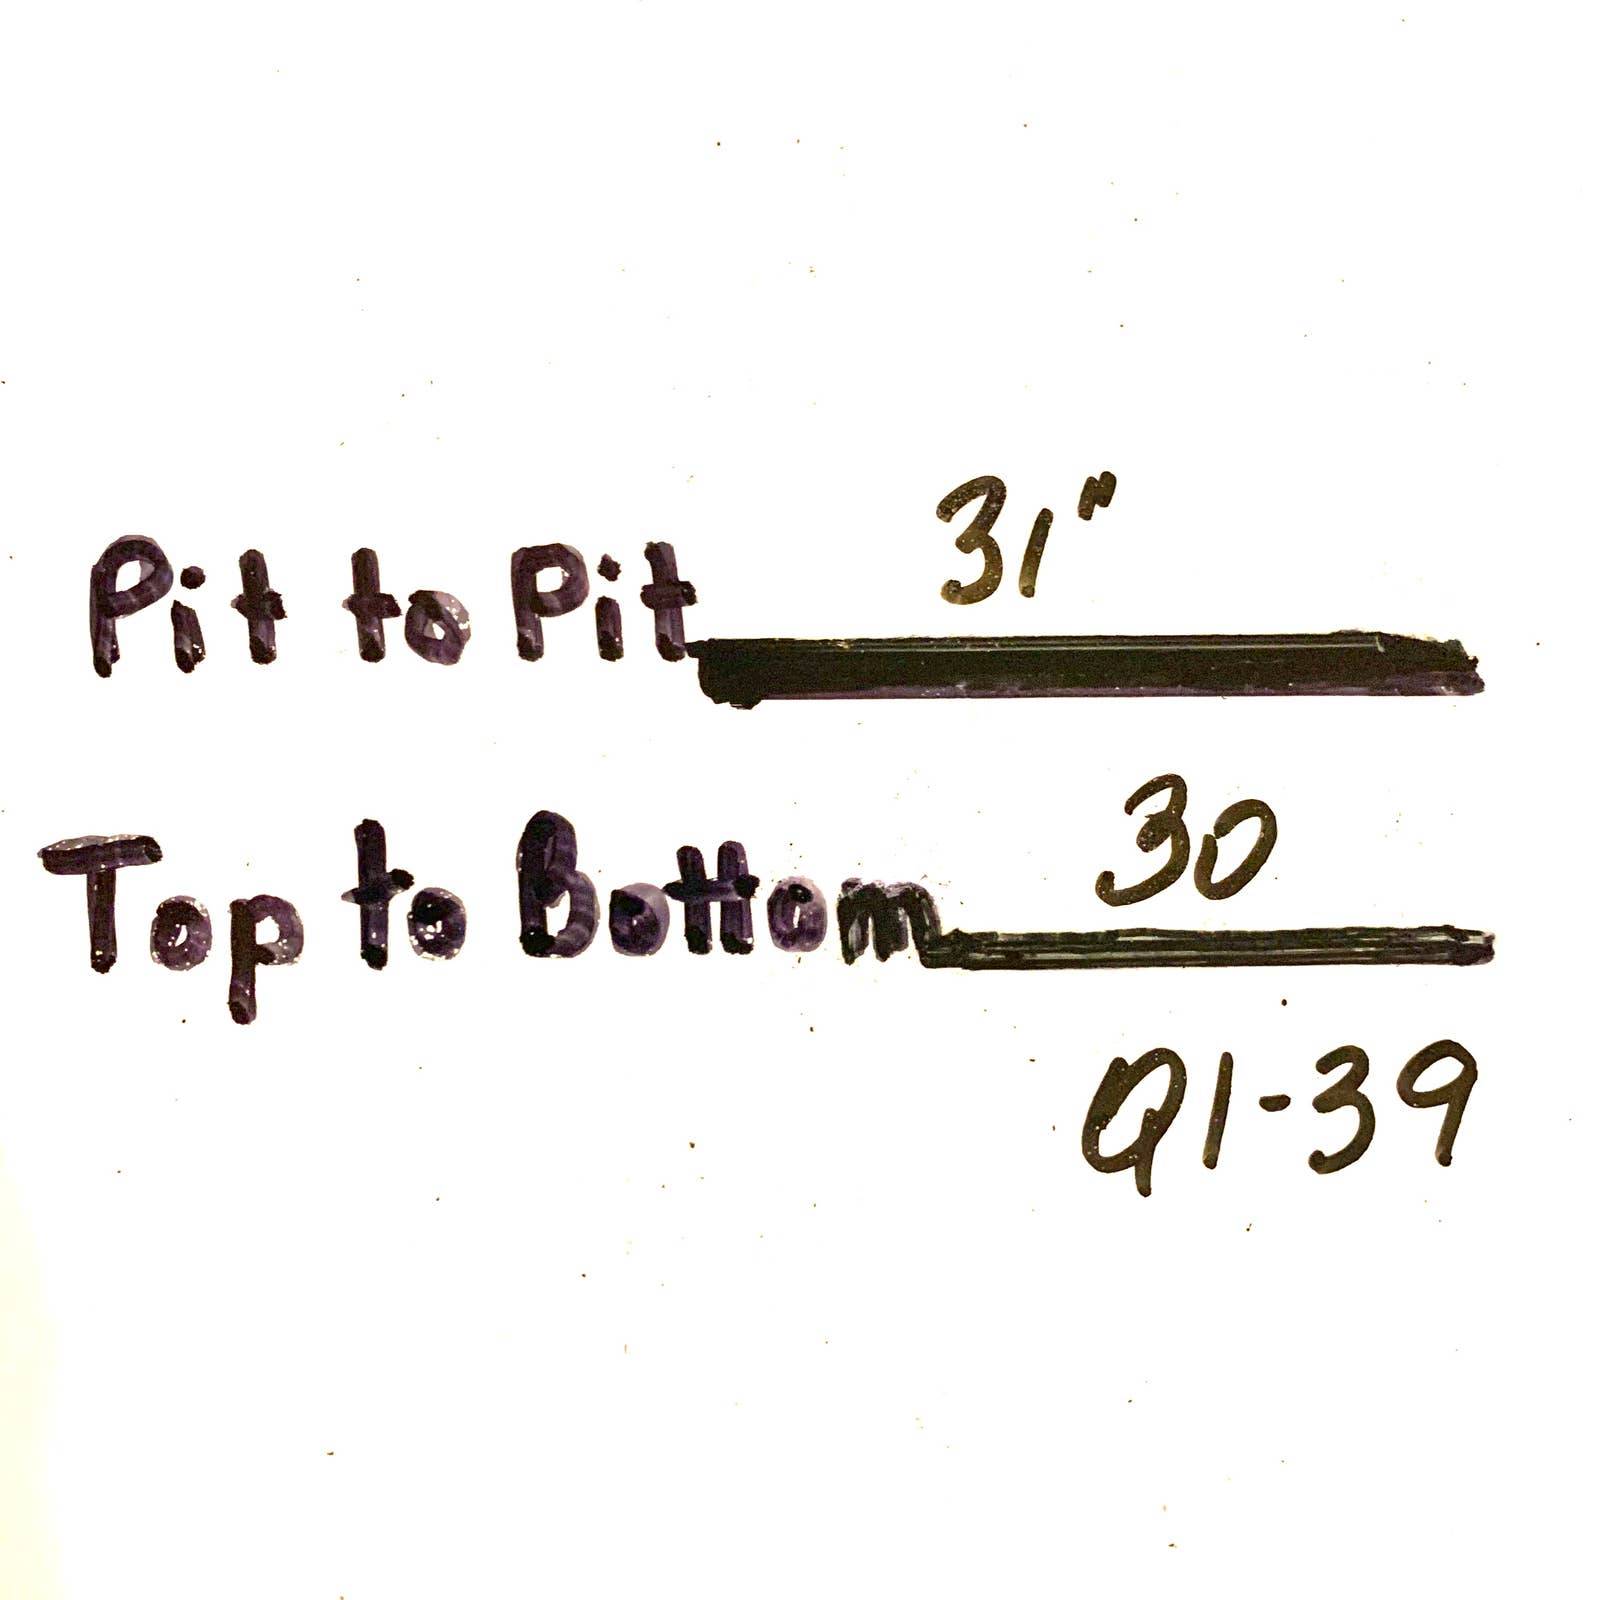 31"
Pit to Pit
30
Top to Bottom
Q1-39